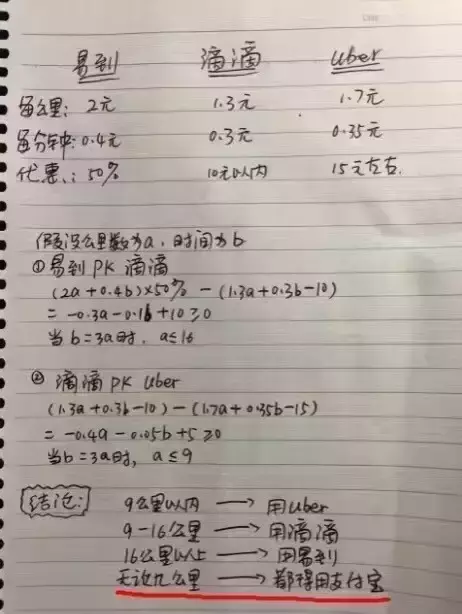 易到 滴滴 uber
每公里: 2元 1.3元 1.7元
每分钟: 0.4元 0.3元 0.35元
代惠: 50% 10元以内 15元左右.
假设公里数为a, 时间为b
① 易到 PK 滴滴
(2a+0.4b)×50% - (1.3a+0.3b-10)
= -0.3a-0.1b+10≥0
当b=3a时, a≤16
② 滴滴 PK uber
(1.3a+0.3b-10) - (1.7a+0.35b-15)
= -0.4a-0.05b+5≥0
当b=3a时, a≤9
结论: 9公里以内 → 用uber
9-16公里 → 用滴滴
16公里以上 → 用易到
无论几公里 → 都得用支付宝